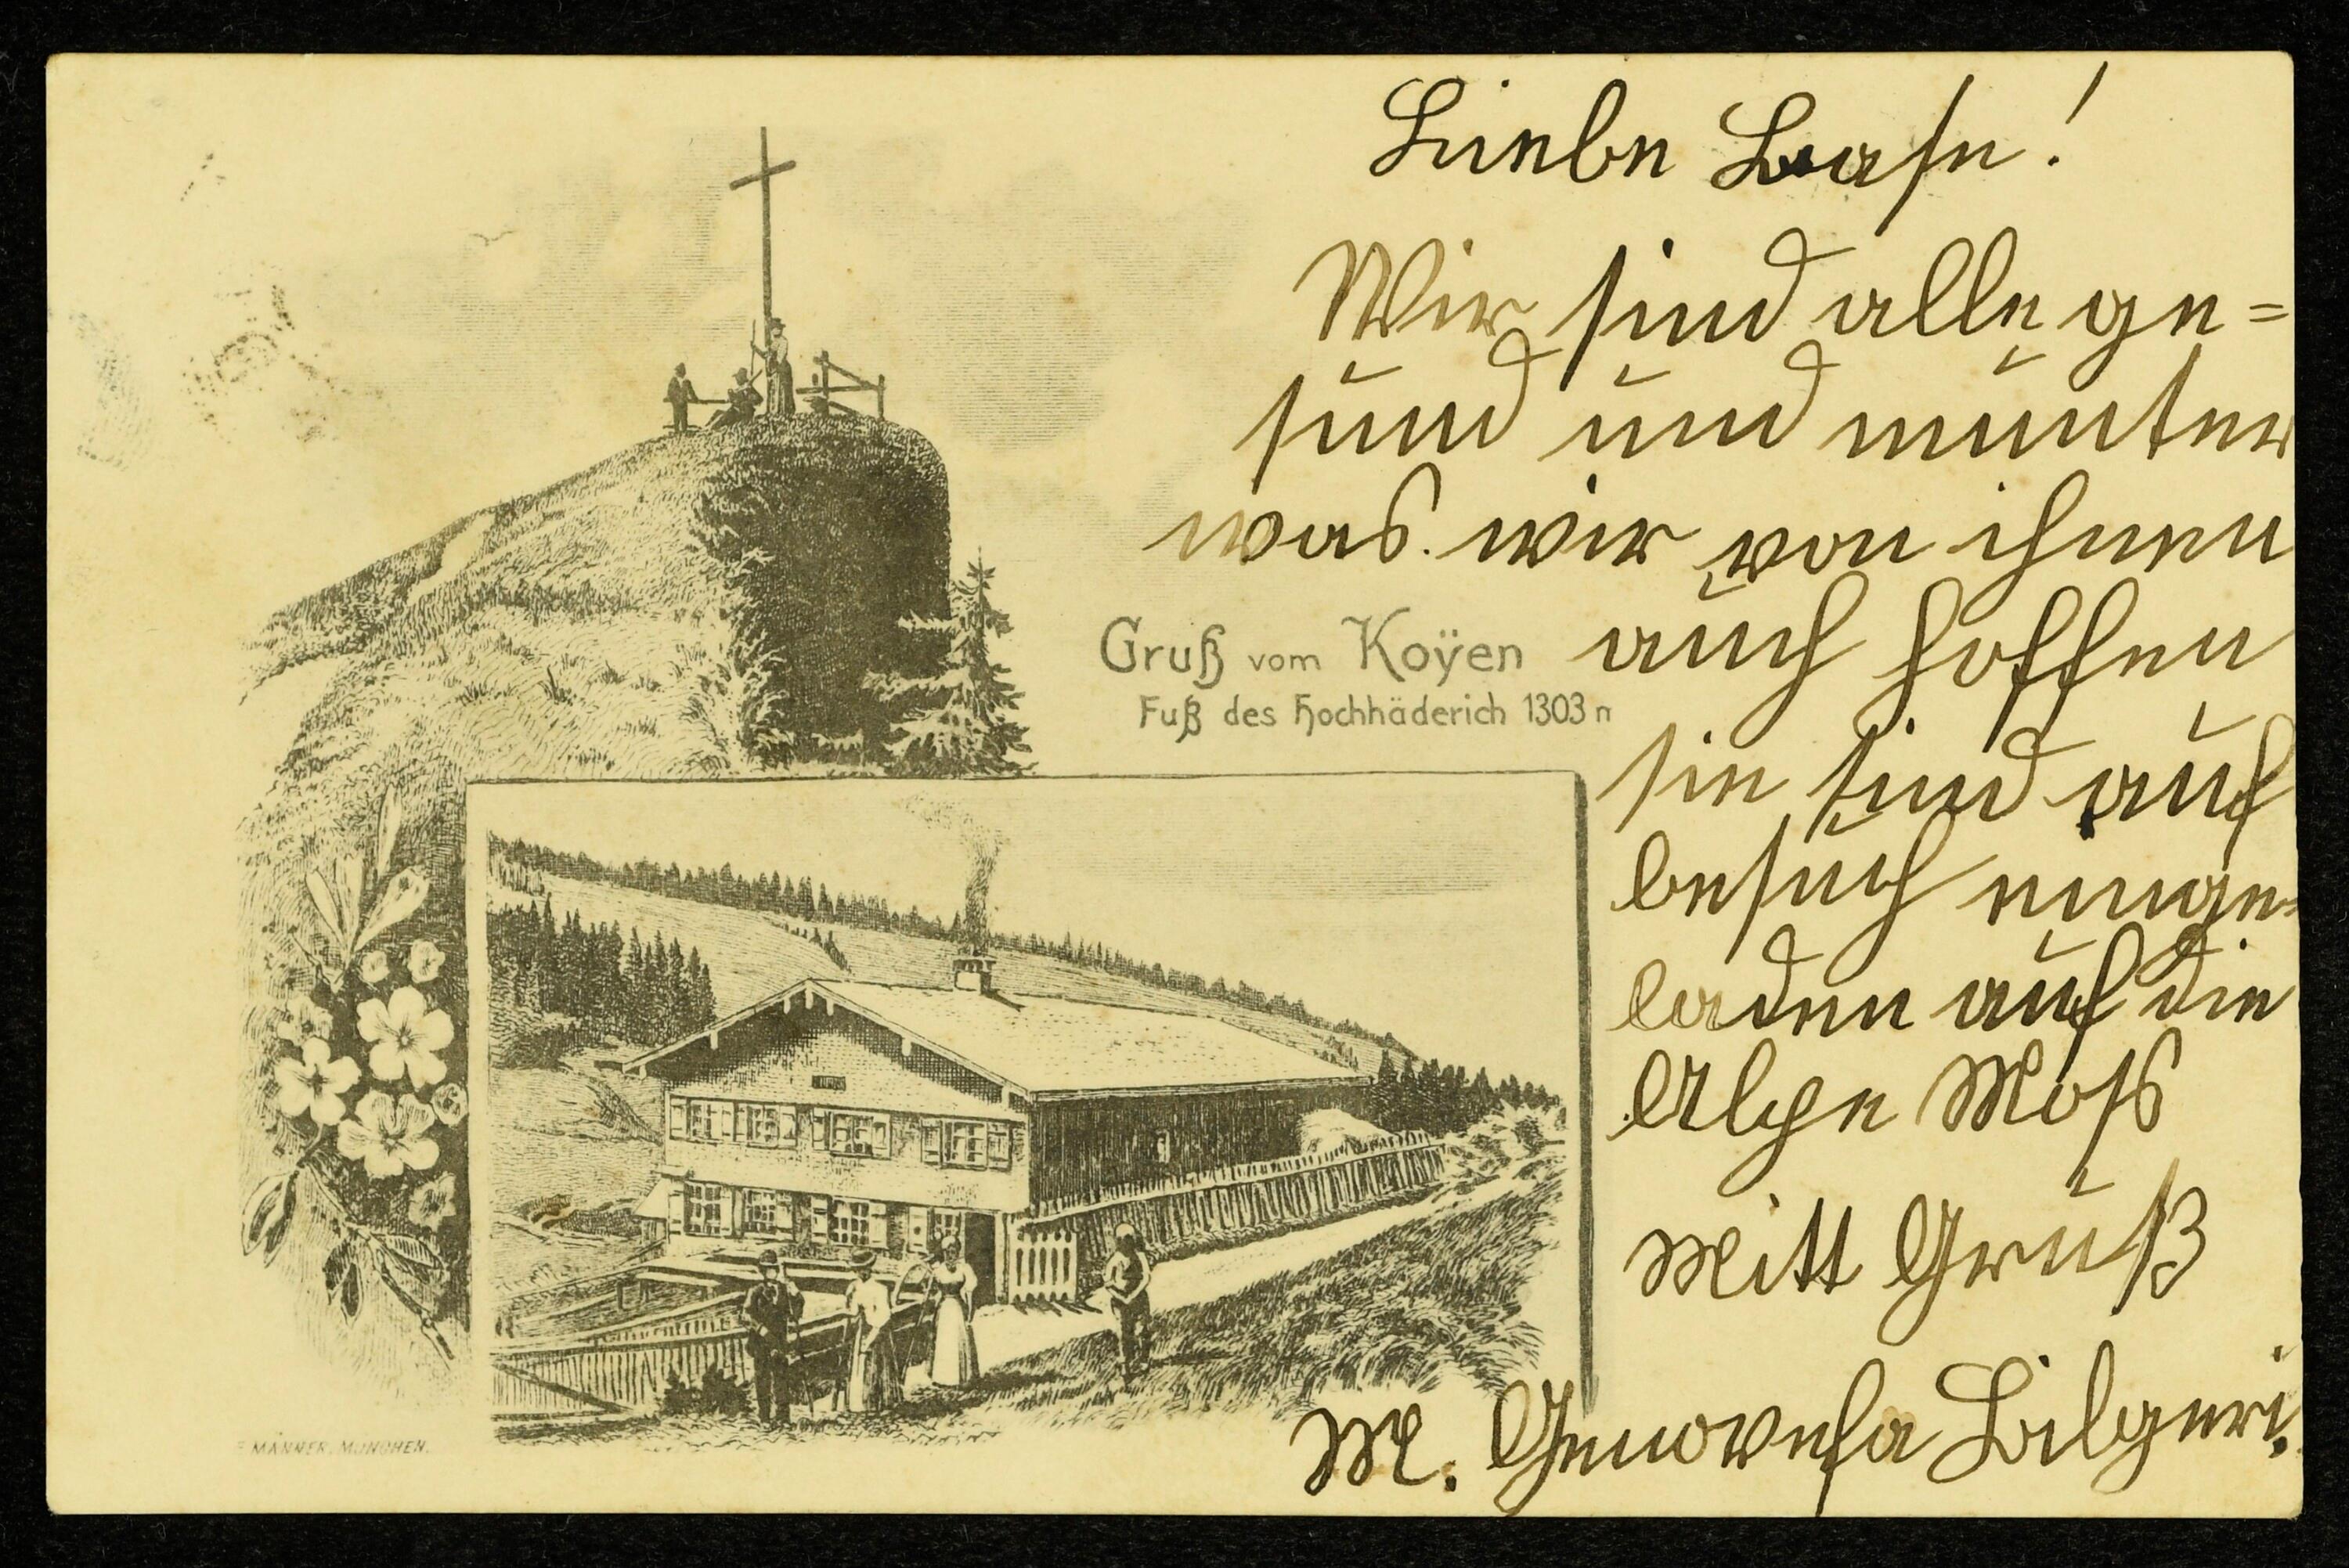 Liebe Base!
Wir sind alle ge=
sund und munter
was. wir von ihnen
auch hoffen
sie sind auf
besuch einge-
laden auf die
Alpe Moss
Mitt Gruß
M. Genovefa Bilgeri.
Gruß vom Koÿen
Fuß des Hochhäderich 1303 m
E. MÄNNER. MÜNCHEN.